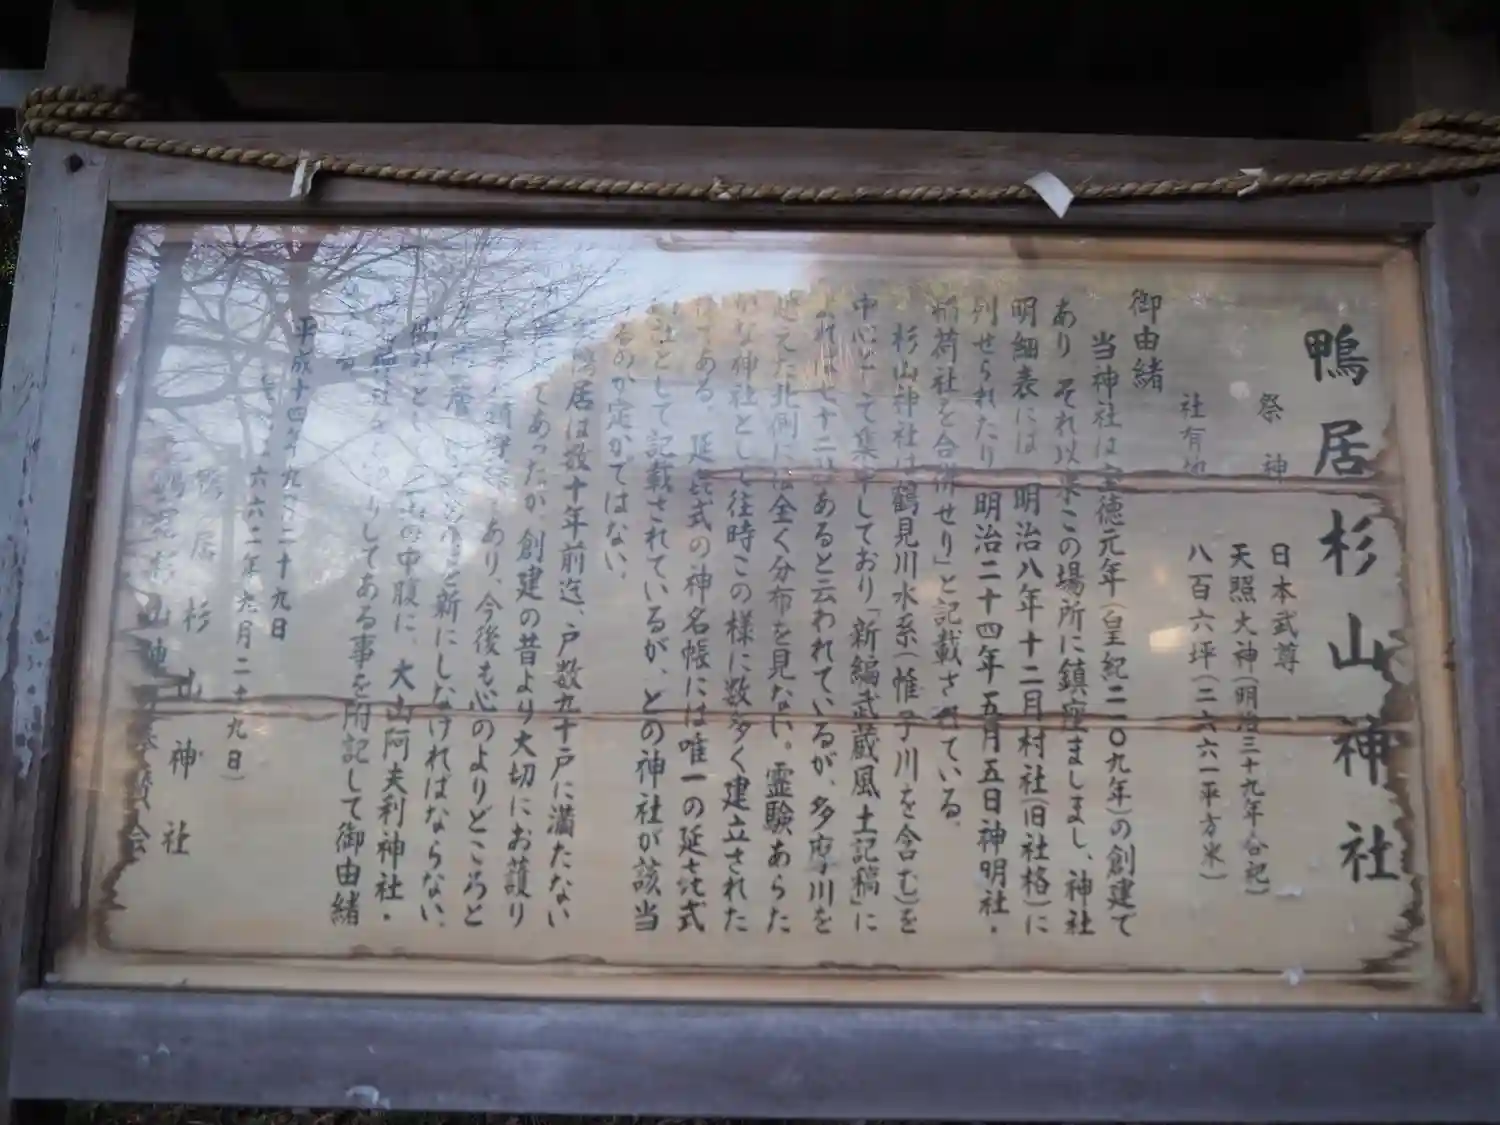 鴨居杉山神社
祭神 日本武尊
天照大神(明治三十九年合祀)
社有地 八百六坪(二六六一平方米)
御由緒
当神社は宝徳元年(皇紀二一〇九年)の創建で
あり それ以来この場所に鎮座ましまし、神社
明細表には「明治八年十二月村社(旧社格)に
列せられたり 明治二十四年五月五日神明社・
稲荷社を合併せり」と記載されている。
杉山神社は鶴見川水系(惟子川を含む)を
中心として集中しており「新編武蔵風土記稿」に
よれば七十二社あると云われているが、多摩川を
越えた北側には全く分布を見ない。霊験あらた
かな神社として往時この様に数多く建立された
様である。延喜式の神名帳には唯一の延喜式
内社として記載されているが、どの神社が該当
するのか定かではない。
鴨居は数十年前迄、戸数九十戸に満たない
であったが、創建の昔より大切にお護り
あり、今後も心のよりどころと
を新にしなければならない。
の中腹に、大山阿夫利神社・
してある事を附記して御由緒
平成十四年九月二十九日
二六六二年九月二十九日)
鴨居杉山神社
杉山神社